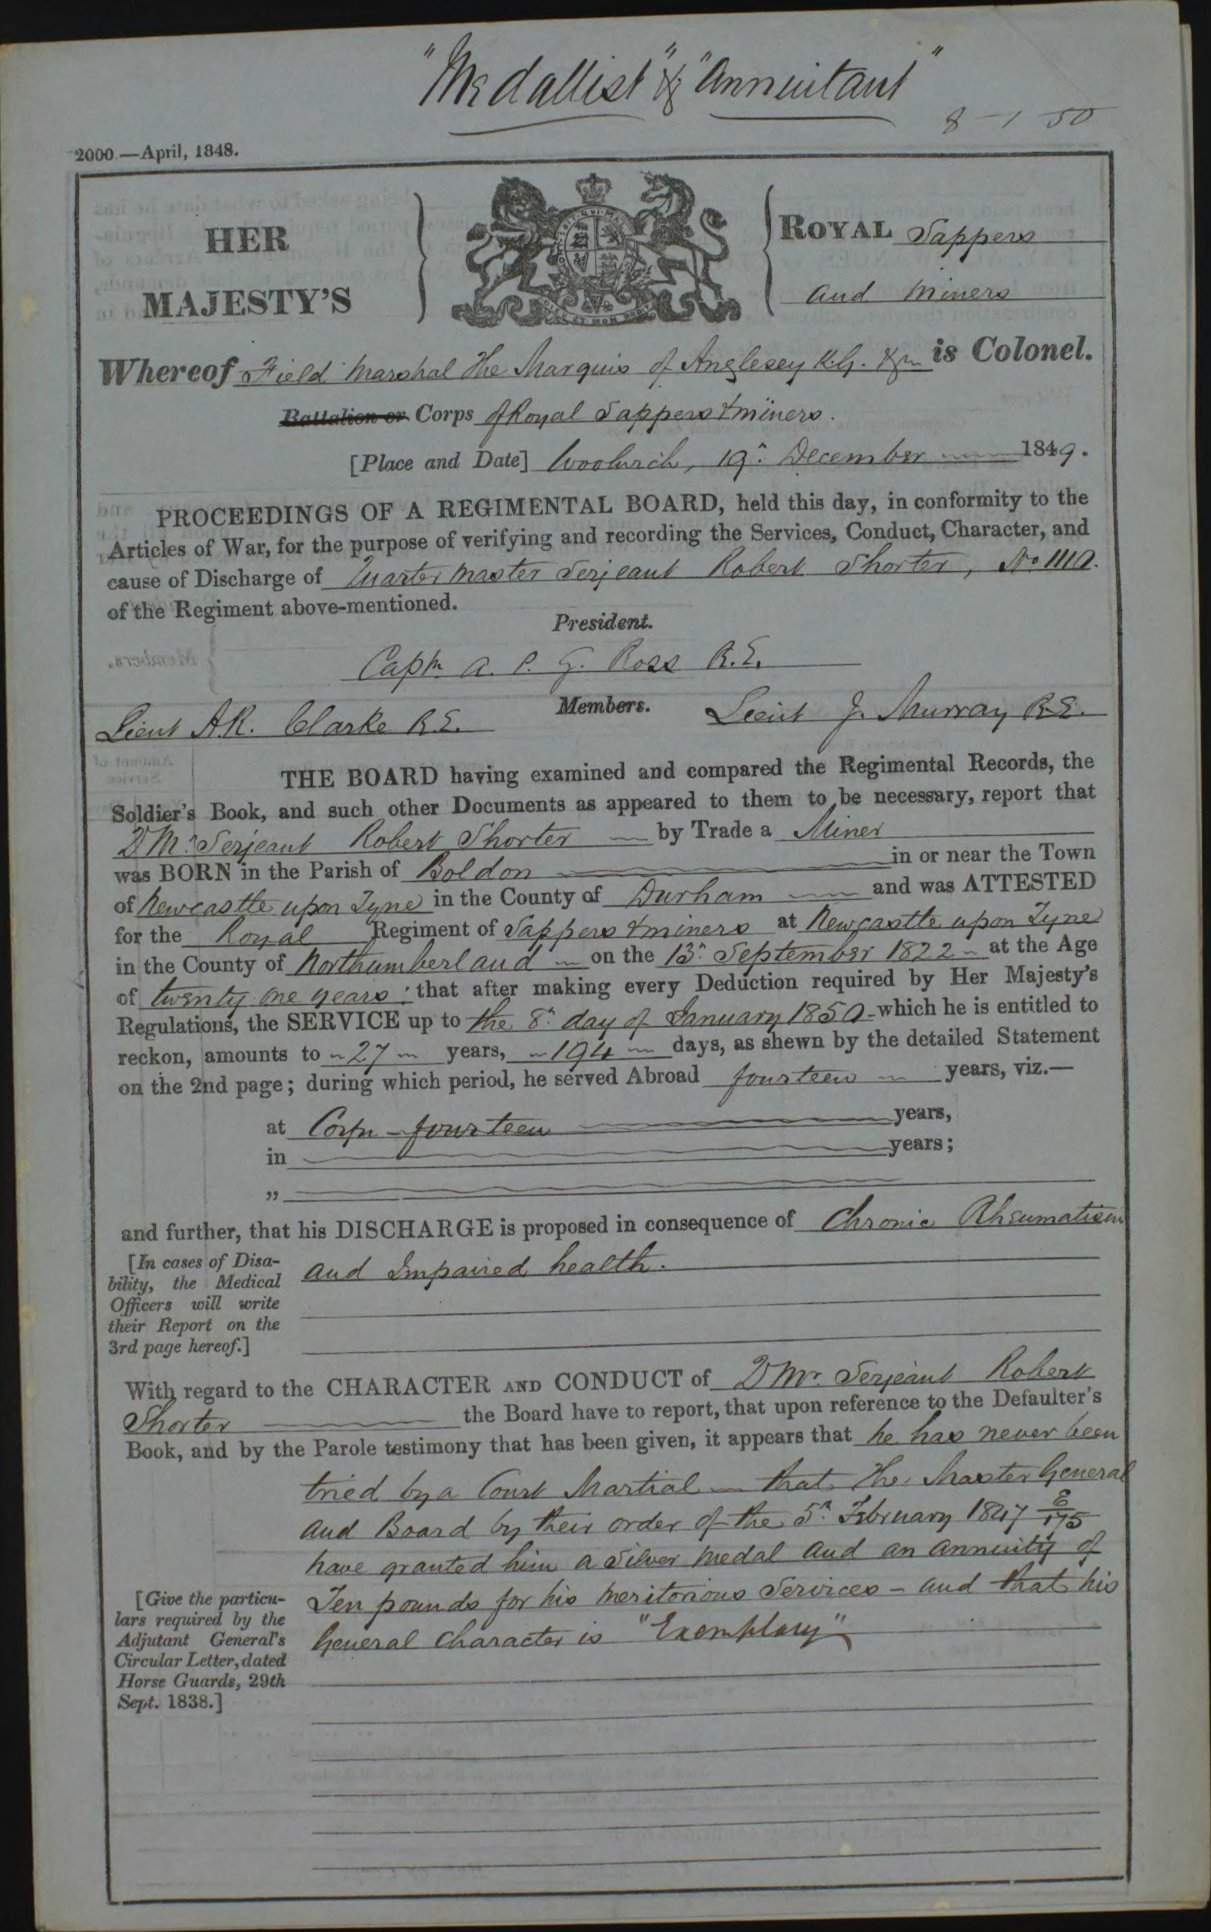 "Medallist" & "Annuitant"
8-1-50
2000.—April, 1848.
HER
MAJESTY'S
ROYAL Sappers
and Miners
Whereof Field Marshal The Marquis of Anglesey K.G. &c is Colonel.
Battalion or Corps of Royal Sappers & Miners.
[Place and Date] Woolwich, 19th December 1849.
PROCEEDINGS OF A REGIMENTAL BOARD, held this day, in conformity to the
Articles of War, for the purpose of verifying and recording the Services, Conduct, Character, and
cause of Discharge of Quarter Master Serjeant Robert Shorter, No 1110.
of the Regiment above-mentioned.
President.
Captn A. P. G. Ross R.E.
Members.
Lieut A.R. Clarke R.E. Lieut J. Murray R.E.
THE BOARD having examined and compared the Regimental Records, the
Soldier's Book, and such other Documents as appeared to them to be necessary, report that
QMr Serjeant Robert Shorter by Trade a Miner
was BORN in the Parish of Boldon in or near the Town
of Newcastle upon Tyne in the County of Durham and was ATTESTED
for the Royal Regiment of Sappers & Miners at Newcastle upon Tyne
in the County of Northumberland on the 13th September 1822 at the Age
of twenty one years; that after making every Deduction required by Her Majesty's
Regulations, the SERVICE up to the 8th day of January 1850 which he is entitled to
reckon, amounts to 27 years, 194 days, as shewn by the detailed Statement
on the 2nd page; during which period, he served Abroad fourteen years, viz.—
at Corfu - fourteen years,
in years;
„
and further, that his DISCHARGE is proposed in consequence of Chronic Rheumatism
and Impaired health.
[In cases of Disa-
bility, the Medical
Officers will write
their Report on the
3rd page hereof.]
With regard to the CHARACTER AND CONDUCT of QMr. Serjeant Robert
Shorter the Board have to report, that upon reference to the Defaulter's
Book, and by the Parole testimony that has been given, it appears that he has never been
tried by a Court Martial - that The Master General
and Board by their order of the 5th February 1847 E/175
have granted him a Silver Medal and an annuity of
Ten pounds for his meritorious Services - and that his
General Character is "Exemplary"
[Give the particu-
lars required by the
Adjutant General's
Circular Letter, dated
Horse Guards, 29th
Sept. 1838.]